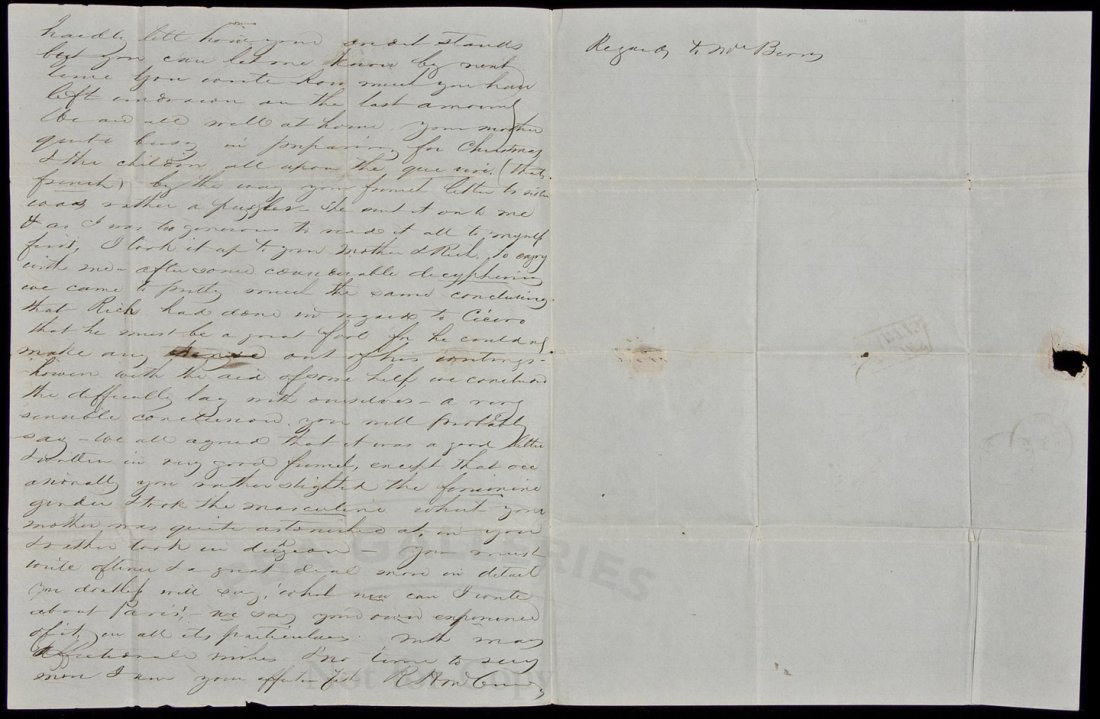 hardly tell how your credit stands
but you can let me know by next
time you write how much you have
left undrawn on the last amount
We are all well at home. Your mother
quite busy in preparing for Christmas
& the children all upon the que vive (thats
french) by the way your french letter to sister
was rather a puzzler - She sent it on to me
& as I was too generous to read it all to myself
first, I took it up to your Mother & Rich, to enjoy
with me - after some considerable decyphering
we came to pretty much the same conclusion
that Rich had done in regard to Cicero
that he must be a great fool for he could not
make any out of his writings -
however with the aid of some help we concluded
the difficulty lay with ourselves - a very
sensible conclusion, you will probably
say - We all agreed that it was a good letter
written in very good french, except that occ
asionally you rather slighted the feminine
gender & took the masculine what your
mother was quite astonished at, as you
rather took in - You must
write oftener & a great deal more in detail
You doubtless will say, 'what new can I write
about Paris' - we say your own experience
of it, in all its particulars. With many
affectionate wishes & no time to say
more I am your affte R H
Regards to Mr Berry
GALLERIES
Not for Copy